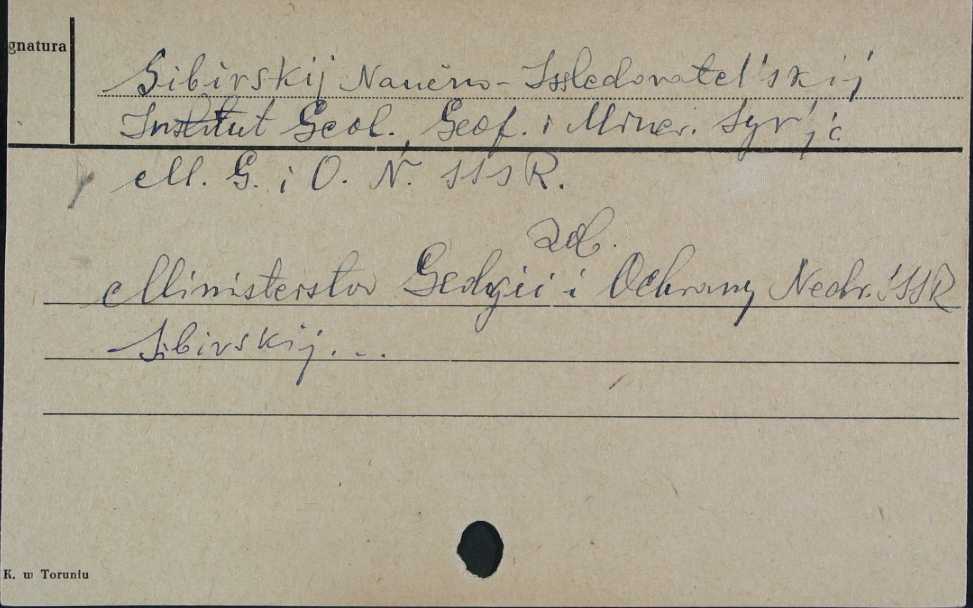 gnatura
Sibirskij Naučno-Issledovatel'skij
Institut Geol., Geof. i Miner. Syr'ja
M. G. i O. N. SSSR.
zob.
Ministerstvo Geologii i Ochrany Nedr. SSSR
Sibirskij...
K. w Toruniu